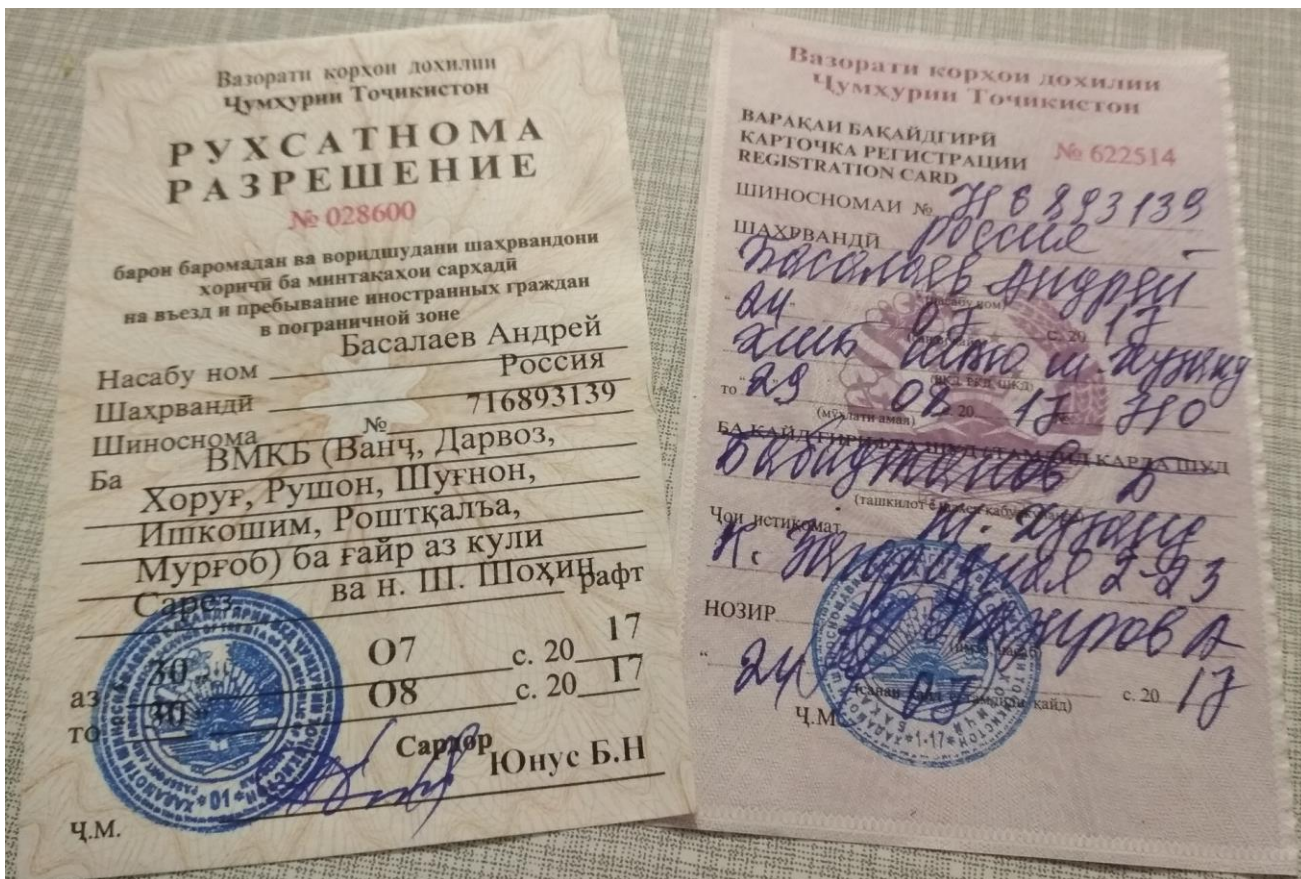 Вазорати корҳои дохилии
Ҷумҳурии Тоҷикистон
РУХСАТНОМА
РАЗРЕШЕНИЕ
№ 028600
барои баромадан ва воридшудани шаҳрвандони
хориҷӣ ба минтақаҳои сарҳадӣ
на въезд и пребывание иностранных граждан
в пограничной зоне
Насабу ном Басалаев Андрей
Шаҳрвандӣ Россия
Шиноснома № 716893139
Ба ВМКБ (Ванҷ, Дарвоз,
Хоруғ, Рушон, Шуғнон,
Ишкошим, Роштқалъа,
Мурғоб) ба ғайр аз кули
Сарез ва н. Ш. Шоҳин рафт
аз 30 О7 с. 20 17
то 30 О8 с. 20 17
Сардор
Юнус Б.Н
Ҷ.М.
Вазорати корҳои дохилии
Ҷумҳурии Тоҷикистон
ВАРАҚАИ БАҚАЙДГИРӢ
КАРТОЧКА РЕГИСТРАЦИИ
REGISTRATION CARD
№ 622514
ШИНОСНОМАИ № 716893139
ШАҲРВАНДӢ Россия
Басалаев Андрей
(насабу ном)
"24" 07 с. 20 17
то "29 08 20 17
(мӯҳлати амал)
БА ҚАЙД ГИРИФТА ШУД (ТАМДИД КАРДА ШУД
Ҷои истиқомат
2-23
НОЗИР
"24 07 с. 20 17
Ҷ.М.